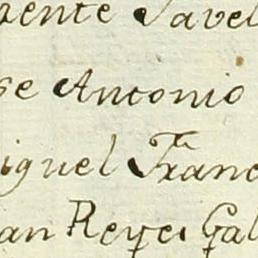 ente Savel
se Antonio
iguel Franc
an Reyes Gal